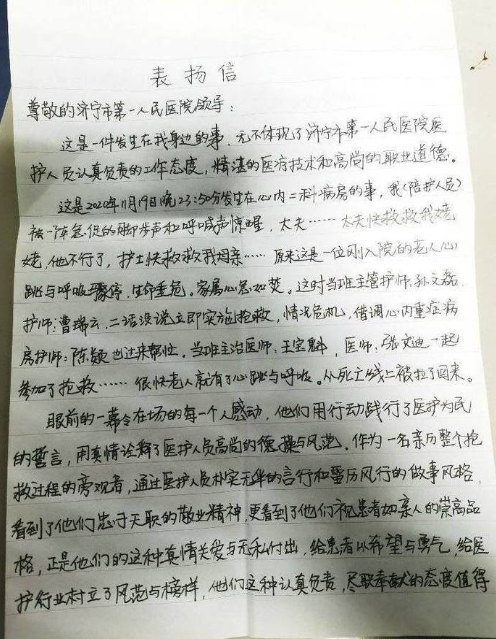 表扬信
尊敬的济宁市第一人民医院领导：
这是一件发生在我身边的事，无不体现了济宁市第一人民医院医
护人员认真负责的工作态度，精湛的医疗技术和高尚的职业道德。
这是2020年11月19日晚23:50分发生在心内二科病房的事，我（陪护人员）
被一阵急促的脚步声和呼喊声惊醒，大夫……大夫快救救我姥
姥，他不行了，护士快救救我母亲……原来这是一位刚入院的老人心
跳与呼吸骤停，生命垂危。家属心急如焚。这时当班主管护师：孙文磊
护师：曹瑞云，二话没说立即实施抢救，情况危机，借调心内重症病
房护师：陈颖也过来帮忙。当班主治医师：王宝，医师：张文迪一起
参加了抢救……很快老人就有了心跳与呼吸。从死亡线上被拉了回来。
眼前的一幕令在场的每一个人感动，他们用行动践行了医护为民
的誓言，用真情诠释了医护人员高尚的德操与风范。作为一名亲历整个抢
救过程的旁观者，通过医护人员朴实无华的言行和雷厉风行的做事风格，
看到了他们忠于天职的敬业精神，更看到了他们视患者如亲人的崇高品
格，正是他们的这种真情关爱与无私付出，给患者以希望与勇气，给医
护行业树立了风范与榜样，他们这种认真负责，尽职奉献的态度值得